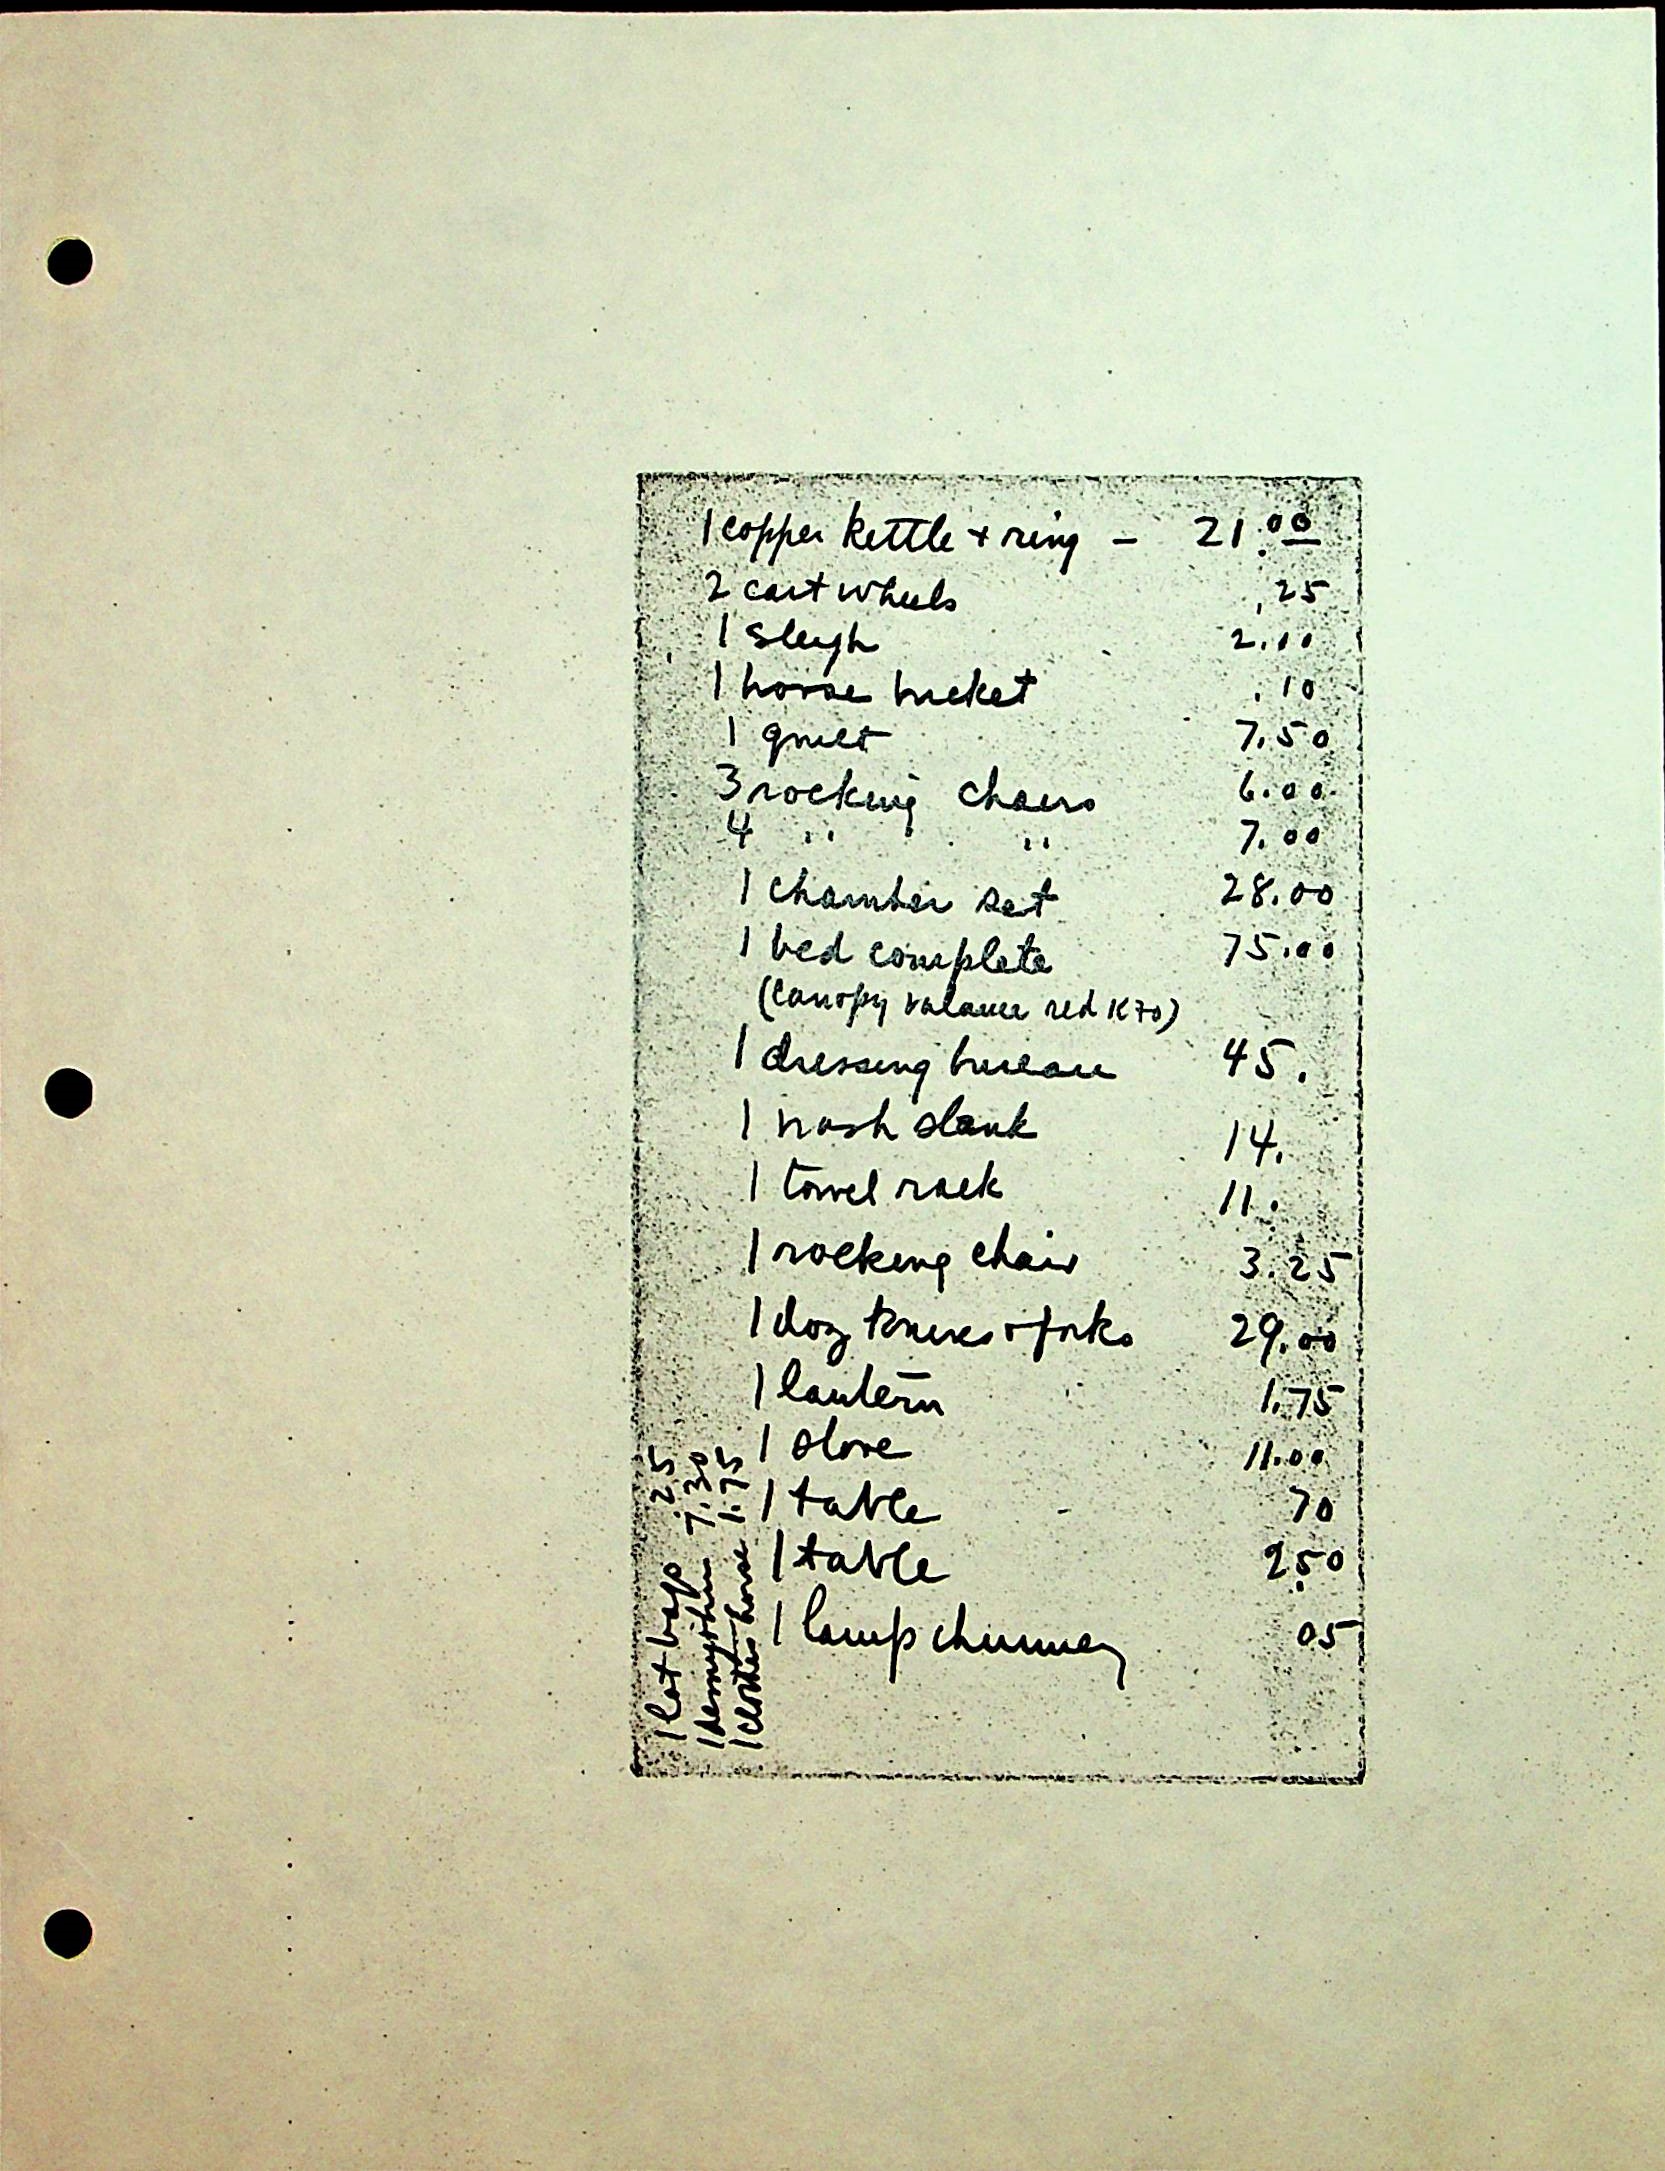 1 copper kettle + ring – 21.00
2 cart wheels .25
1 sleigh 2.00
1 horse bucket .10
1 quilt 7.50
3 rocking chairs 6.00
4 " " 7.00
1 chamber set 28.00
1 bed complete 75.00
(canopy valance red
1 dressing bureau 45.
1 wash stank 14.
1 towel rack 11.
1 rocking chair 3.25
1 doz knives + forks 29.00
1 lantern 1.75
1 stove 11.00
1 table 70
1 table 2.50
1 lamp chimney 05
1 lot bags .25
1 demijohn 7.30
1 clothes horse 1.75